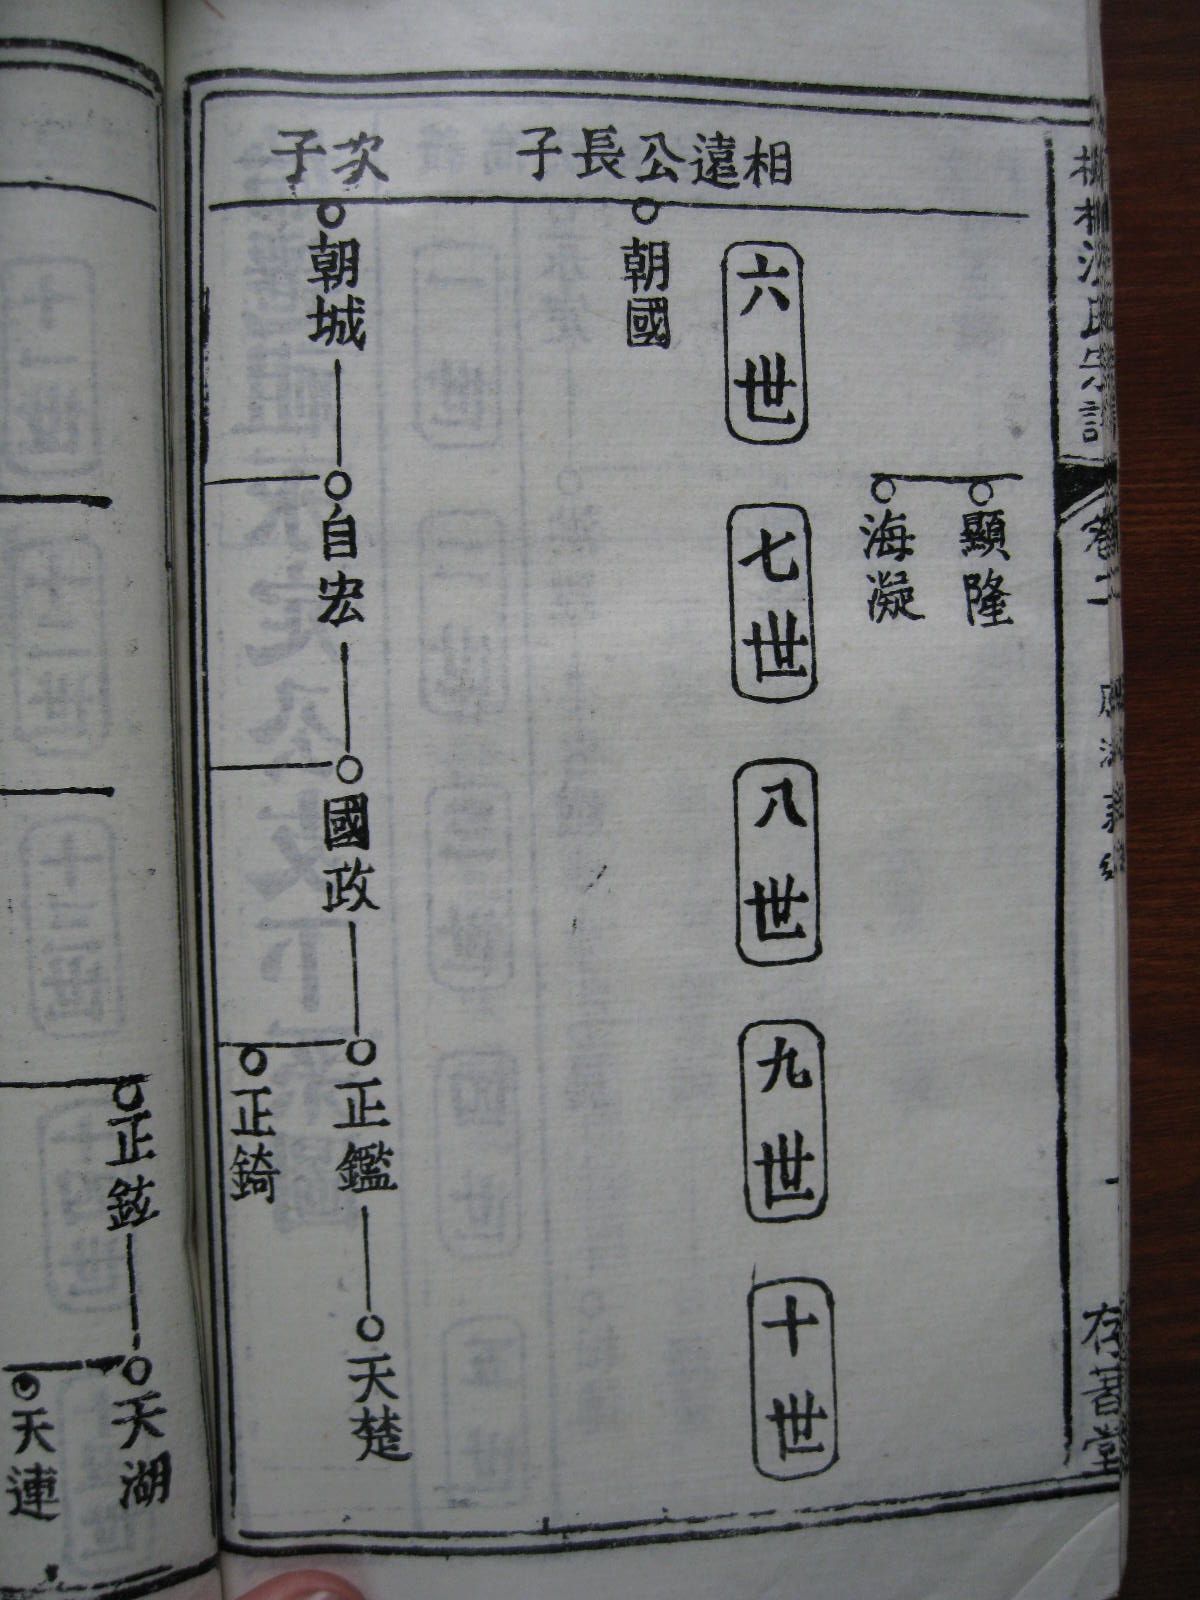 卷二
存著堂
顯隆
海凝
六世
七世
八世
九世
十世
相遠公長子
朝國
次子
朝城
自宏
國政
正鑑
天楚
正錡
正鉉
天湖
天連